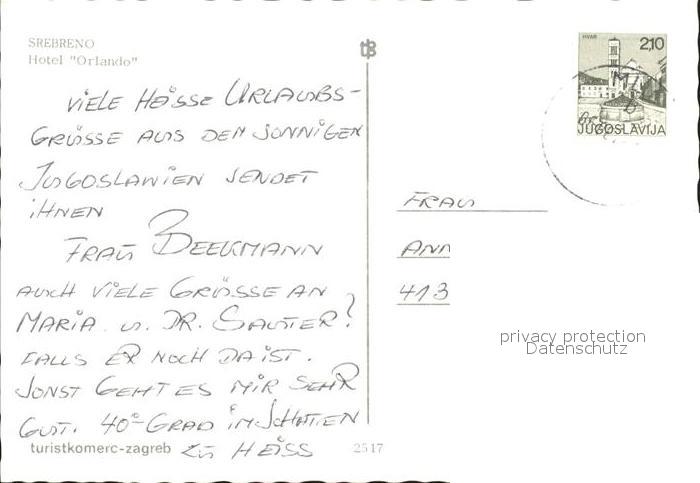 SREBRENO
Hotel "Orlando"
VIELE HEISSE URLAUBS-
GRÜSSE AUS DEM SONNIGEN
JUGOSLAWIEN SENDET
IHNEN
FRAU BEEKMANN
AUCH VIELE GRÜSSE AN
MARIA u. DR. SAUTER!
FALLS ER NOCH DA IST.
SONST GEHT ES MIR SEHR
GUT. 40°-GRAD IM SCHATTEN
ZU HEISS
turistkomerc-zagreb
2517
HVAR
2,10
JUGOSLAVIJA
FRAU
ANN
413
privacy protection
Datenschutz